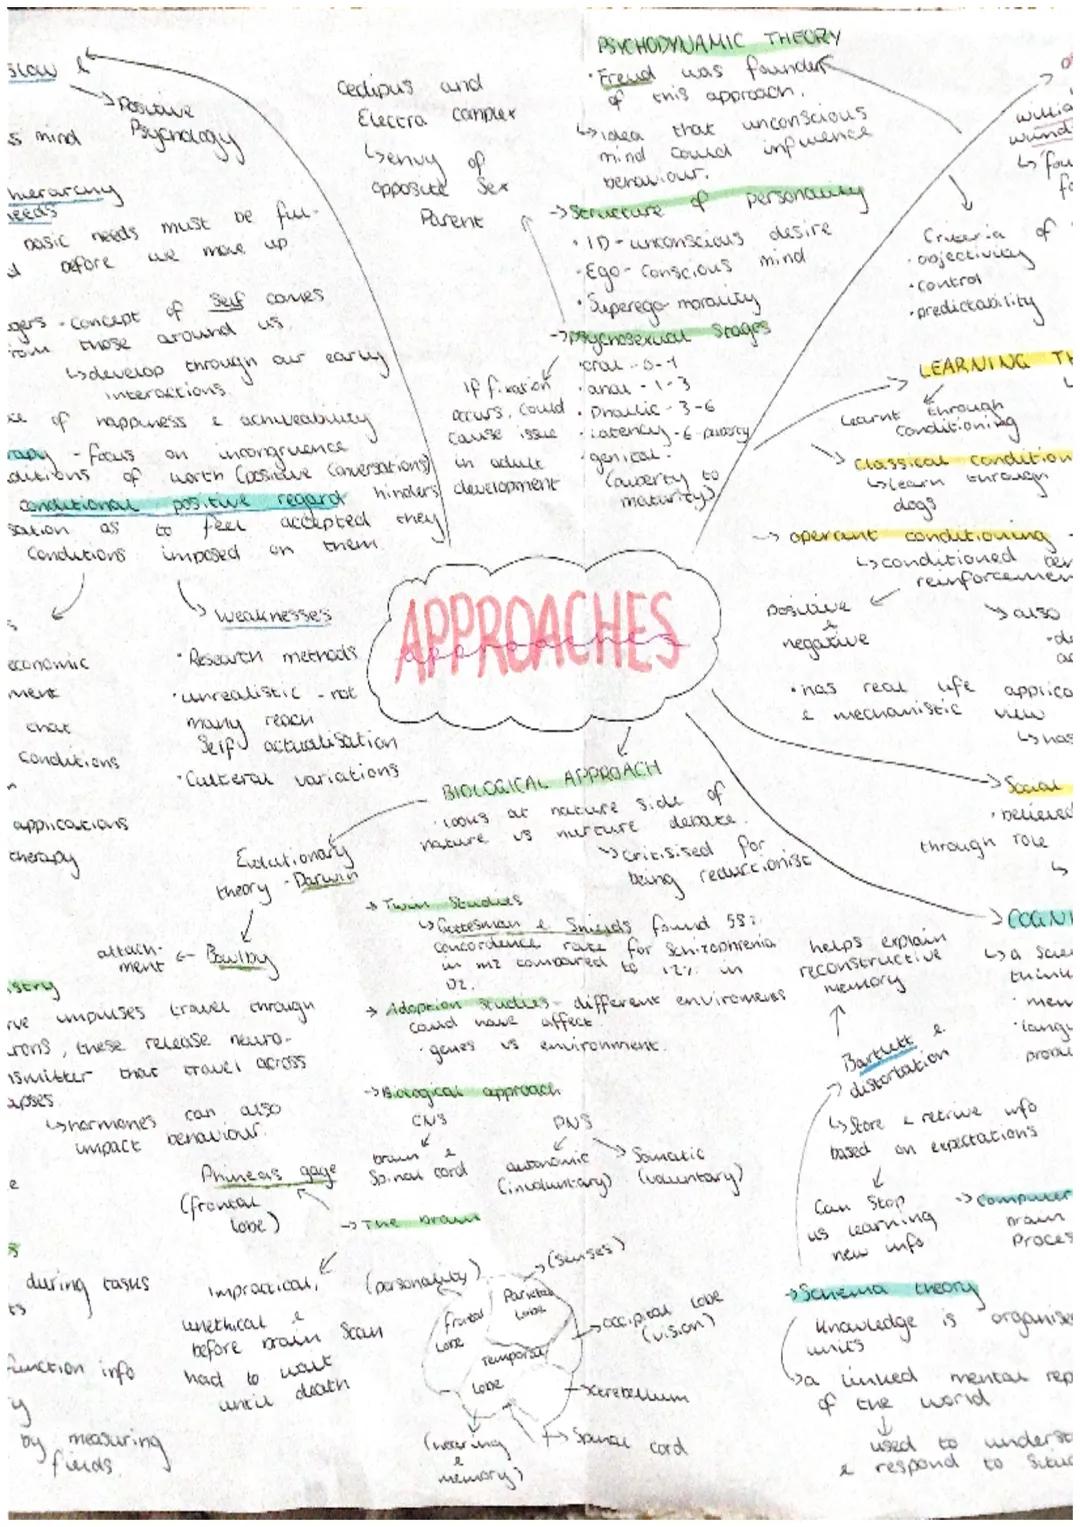 Maslow &
→ Positive
Psychology
mind
hierarchy
needs
basic needs must be ful-
before we move up
- Concept of Self comes
from those around us.
↳ develop through our early
interactions.
of happiness & achiveability
- focus on incongruence
of worth (positive conversations)
conditional positive regard hinders
as to feel accepted they
conditions imposed on them
economic
that
conditions
applications
therapy
→ Weaknesses
• Research methods
• unrealistic - not
many reach
Self actualisation
• Cultural variations
Oedipus and
Electra complex
↳ envy of
opposite Sex
Parent
PSYCHODYNAMIC THEORY
• Freud was founder
of this approach.
↳ idea that unconscious
mind could influence
behaviour.
→ Structure of personality
• ID - unconscious desire
• Ego - conscious mind
• Superego - morality
→ Psychosexual Stages
• oral - 0-1
• anal - 1-3
• Phallic - 3-6
• Latency - 6 - puberty
• genital -
(puberty to
maturity)
If fixation
occurs, could
cause issue
in adult
development
↳
Criteria of
• objectivity
• control
• predictability
LEARNING
Learnt through
conditioning
→ Classical
↳ learn through
dogs
→ operant conditioning -
↳ conditioned
positive
&
negative
→ also
• has real life
& mechanistic view
↳ has
→ Social
• believed
through role
APPROACHES
approaches
BIOLOGICAL APPROACH
• looks at nature side of
nature vs nurture debate.
→ critisised for
being reductionist
Evolutionary
theory - Darwin
attach-
ment ← Bowlby
→ Twin Studies
↳ Gottesman & Shields found 58%
concordence rate for schizophrenia
in MZ compared to 12% in
DZ.
→ Adoption studies - different enviroments
could have affect.
• genes vs environment.
→ Biological approach
CNS
brain &
Spinal cord
PNS
autonomic
(involuntary)
Somatic
(voluntary)
impulses travel through
, these release neuro-
that travel across
↳ hormones can also
impact behaviour.
Phineas gage
(frontal
lobe)
→ The brain
Impractical,
unethical &
before brain scan
had to wait
until death
(personality)
frontal
lobe
Parietal
lobe
(senses)
temporal
lobe
→ occipital lobe
(vision)
→ cerebellum
→ Spinal cord
(hearing
&
memory)
during tasks
info
by measuring
fields.
→
↳ a
helps explain
reconstructive
memory
Bartlett &
distortation
↳ Store & retrive info
based on expectations
Can Stop
us learning
new info
→ Computer
brain
→ Schema theory
knowledge is
units
↳ a linked mental
of the world
used to
& respond to